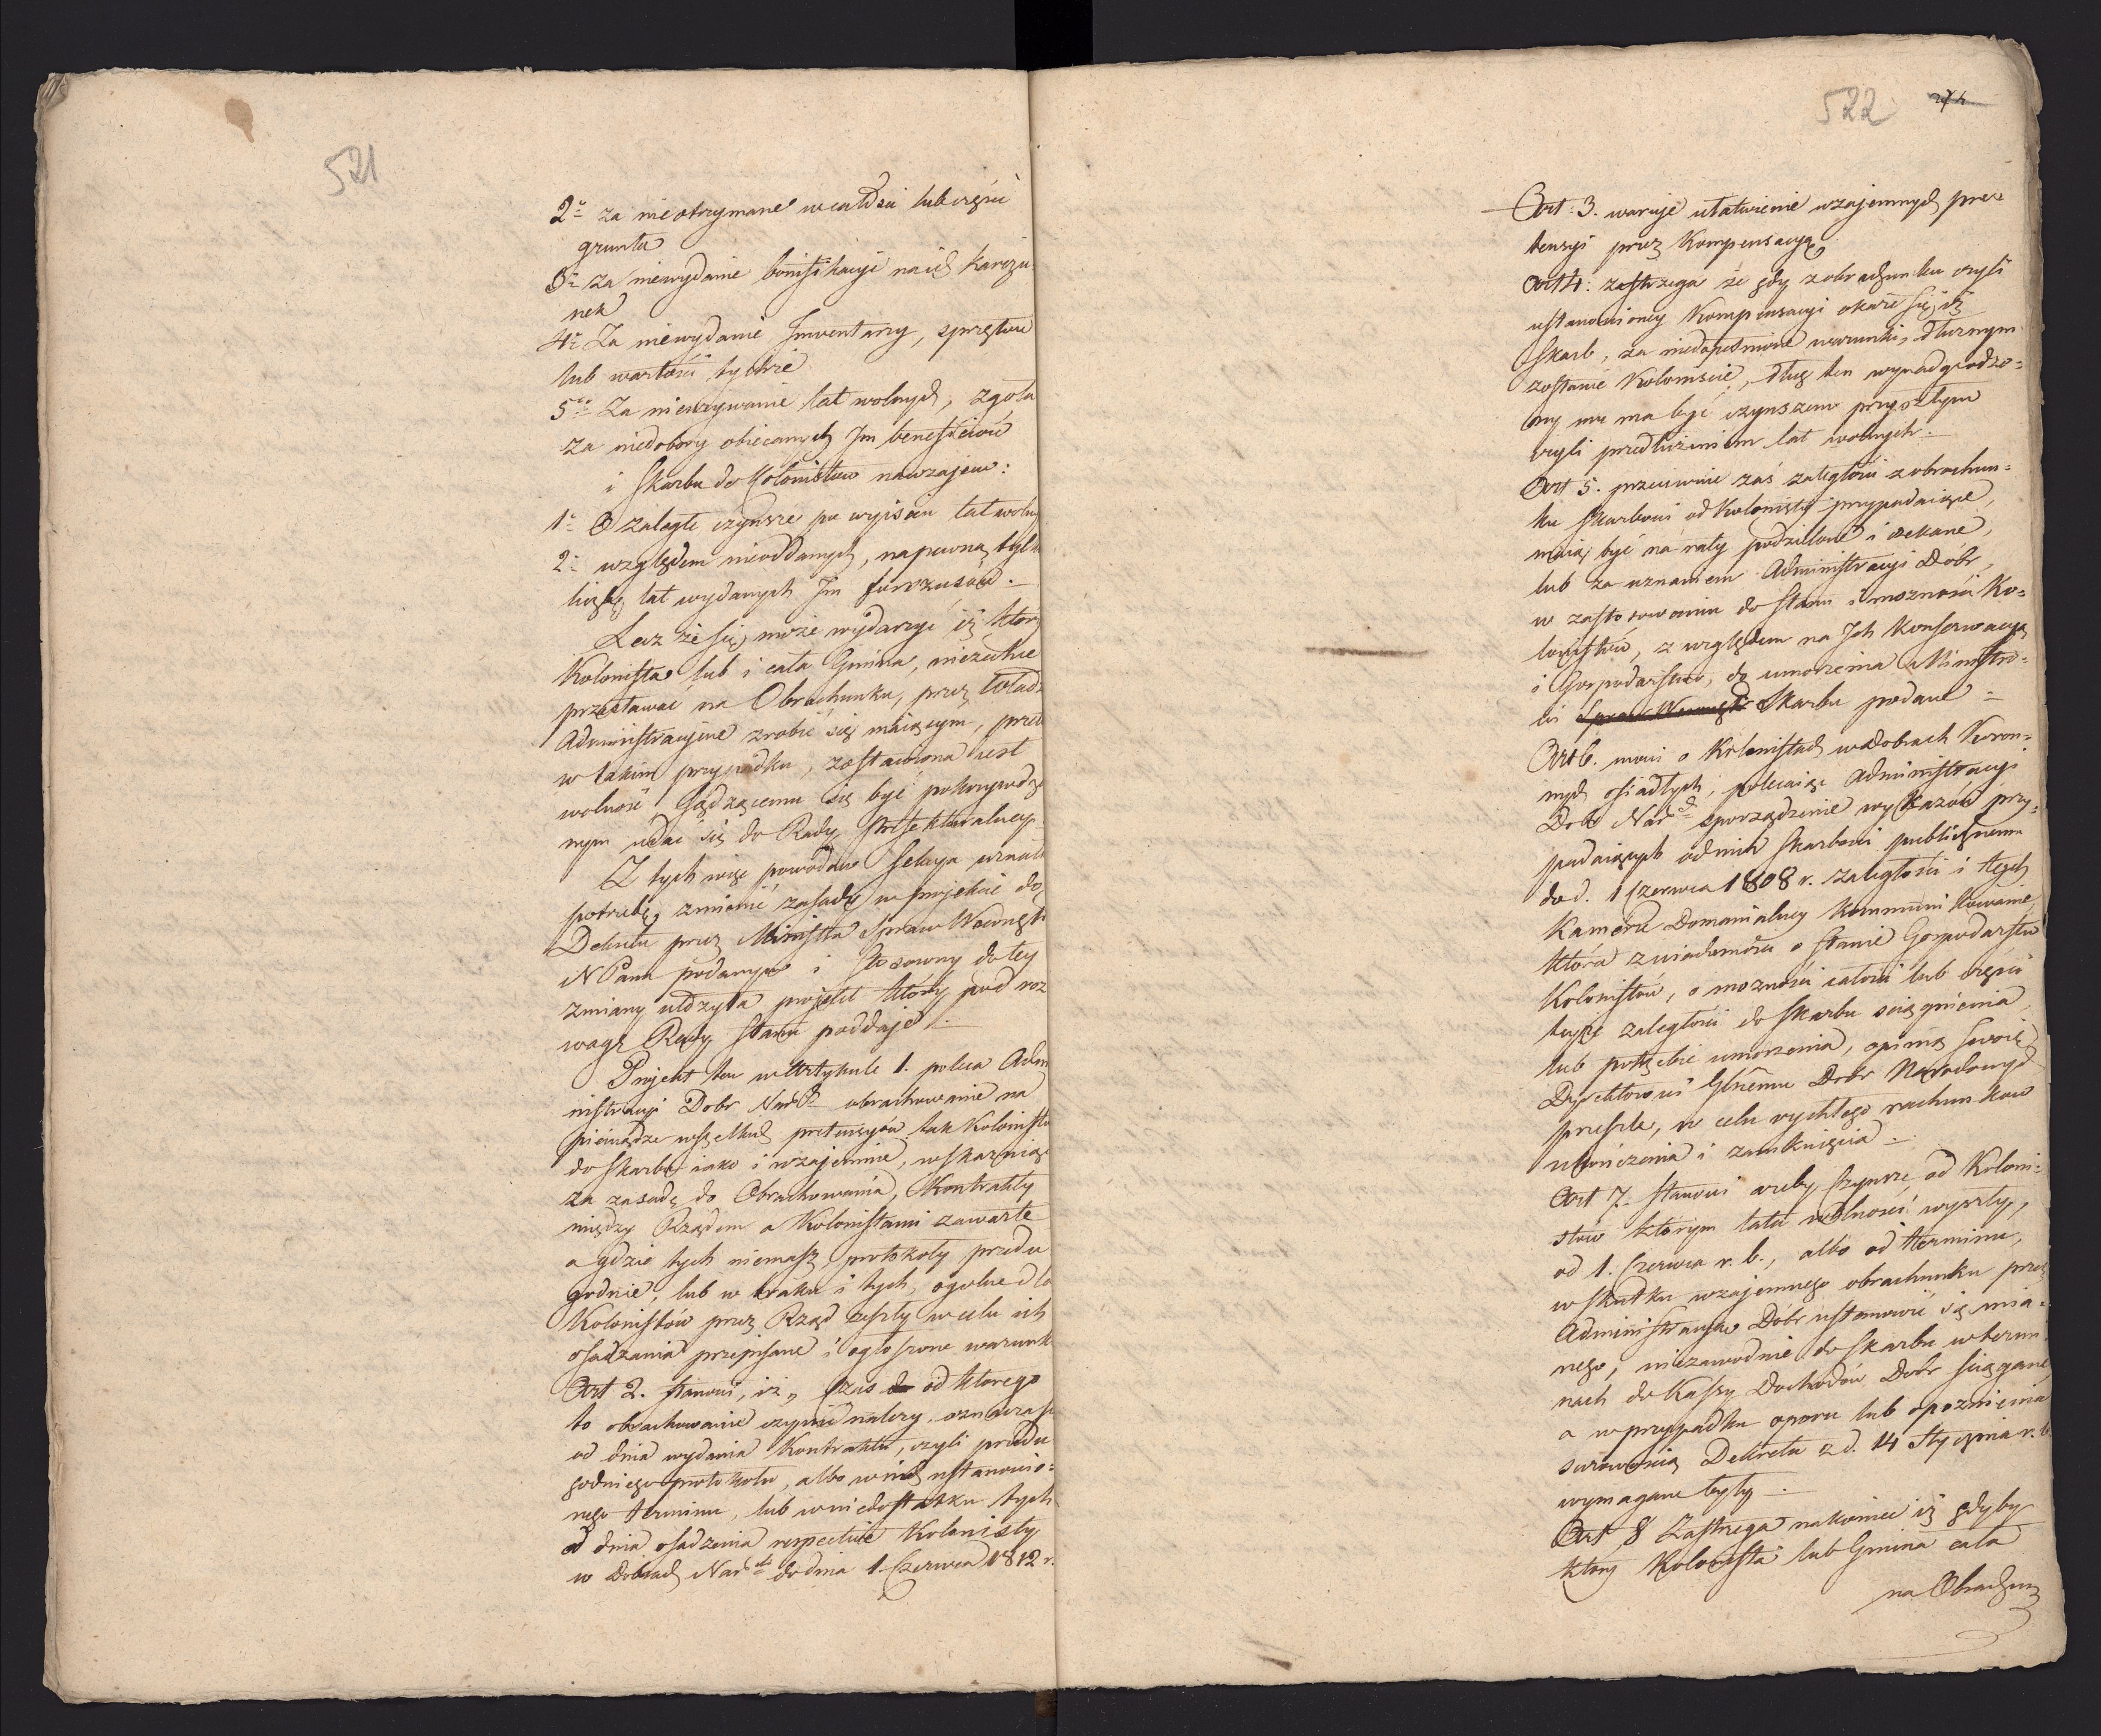 521
2° za nie otrzymane w całości lub części
grunta
3° za niewydanie bonifikacyi na ich karczu
nek
4° Za niewydanie Inwentarzy, sprzętów
lub wartości tychże
5to Za nieużywanie lat wolnych, zgoła
za niedobory obiecanych Im beneficiów
i Skarbu do Kolonistów nawzajem:
1° O zaległe czynsze po wyjściu lat woln
2° względem nieoddanych, na pewną tylko
liczbę lat wydanych Im forszusów.
Lecz że się może wydarzyć iż który
Kolonista lub i cała Gmina, niezechce
przestawać na Obrachunku, przez Władz
Administracyine zrobić się maiącym, prze
w takim przypadku, zostawiona iest
wolność Sądzącemu się być pokrzywdzo
nym udać się do Rady Prefekturalney
Z tych więc powodów Sekcya uznała
potrzebę, zmienić zasady w projekcie do
Dekretu przez Ministra Spraw Wewnętr
N Panu podanym i stosowny do tey
zmiany ułożyła projekt który pod roz
wagę Rady Stanu poddaje.
Projekt ten w Artykule 1. poleca Adm
nistracyi Dobr Nar. obrachowanie na
pieniądze wszelkich pretensyów tak Kolonistó
do Skarbu iako i wzajemnie, wskazuiąc
za zasadę do Obrachowania, Kontrakty
między Rządem a Kolonistami zawarte
a gdzie tych niemasz, protokoły przedu
godnie, lub w braku i tych, ogólne dla
Kolonistów przez Rząd zeszły w celu ich
osadzania przepisane i ogłoszone warunk
Art 2. stanowi, iż, Czas do od którego
to obrachowanie czynić należy oznacza się
od dnia wydania Kontraktu, czyli przedu
godniego protokołu, albo w nich ustanowio=
nego terminu, lub w niedostatku tych
od dnia osadzenia respective Kolonisty
w Dobrach Nar. do dnia 1. Czerwca 1812 r.
522
Art: 3. waruje ułatwienie wzajemnych pre=
tensyi przez Kompensacyą
Art 4: zastrzega że gdy z obrachunku czyli
ustanowioney Kompensacyi okaże się iż
Skarb, za niedopełnione warunki, dłużnym
zostanie Koloniście, dług ten wynadgrodzo=
ny mu ma być czynszem przyszłym
czyli przedłużeniem lat wolnych.
Art 5. przeciwnie zaś zaległości z obrachun=
ku Skarbowi od Kolonisty przypadaiące,
maią być na raty podzielone i czekane,
lub za uznaniem Administracyi Dobr,
w zastosowaniu do stanu i możności Ko=
lonistów, z względem na Ich Konserwacyą
i Gospodarstwo, do umorzenia Ministro=
wi Spraw Wewnętr Skarbu podane
Art 6. mówi o Kolonistach w dobrach Koron=
nych osiadłych, polecaiąc Administracyi
Dobr Nar. sporządzenie wykazów przy=
padaiących od nich Skarbowi publicznemu
do d. 1 Czerwca 1808 r. zaległości i tych
Kamerze Domanialney kommunikowanie,
która z wiadomości o stanie Gospodarstw
Kolonistów, o możności całości lub części
teyże zaległości do Skarbu ściągnienia
lub potrzebie umorzenia, opinią swoię
Dyrektorowi Głnemu Dobr Narodowych
prześle, w celu rychłego rachunków
ukończenia i zamknięcia.
Art 7. stanowi ażeby Czynsze od Koloni=
stów którym lata wolności wyszły,
od 1. Czerwca r. b., albo od terminu,
w skutku wzajemnego obrachunku przez
Administracyą Dóbr ustanowić się mia=
nego, niezawodnie do Skarbu w termi
nach do Kassy Dochodów Dobr ściągane,
a w przypadku oporu lub opóźnienia
surowością Dekretu z d. 14 Stycznia r. b.
wymagane były.
Art 8 Zastrzega nakoniec iż gdyby
który Kolonista lub Gmina cała
na Obrachun